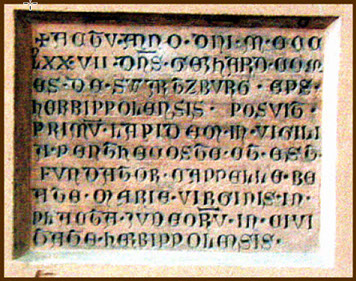 ✠ACTV·ANNO·DNI·M·CCC
LXX·VII·DNS·GERHARD·COM
ES·DE·SWARTZBURG·EPS·
HERBIPPOLENSIS·POSVIT·
PRIMV·LAPIDEM·IN·VIGILI
A·PENTHECOSTE·ET·EST·
FVNDATOR·CAPPELLE·BE
ATE·MARIE·VIRGINIS·IN·
PLACEA·IVDEORV·IN·CIVI
TATE·HERBIPPOLENSIS·